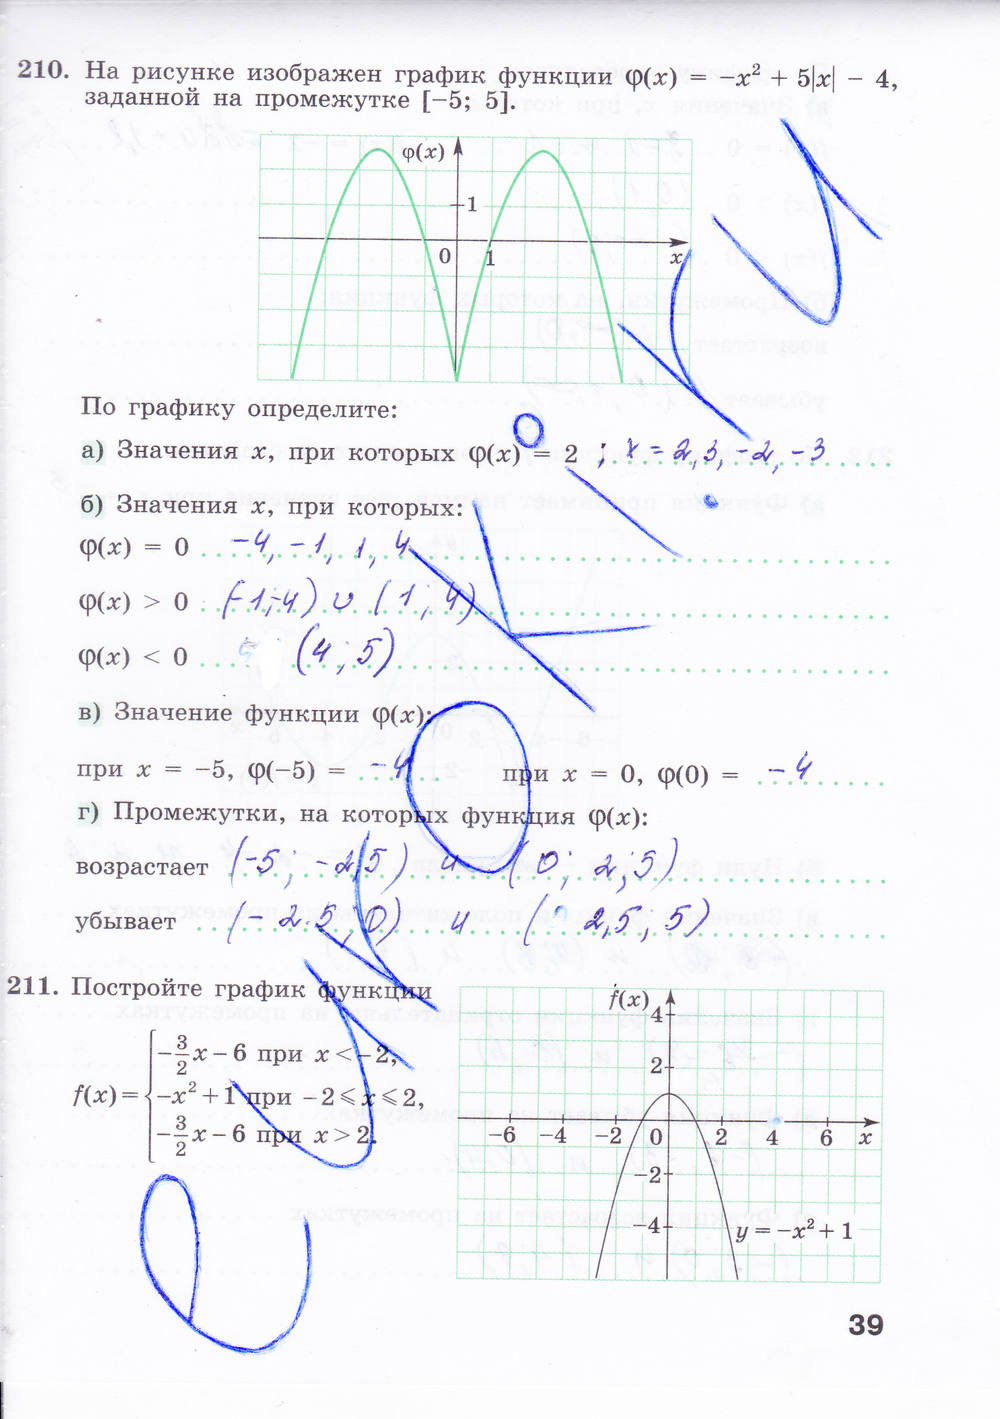 210. На рисунке изображен график функции φ(x) = −x² + 5|x| − 4,
заданной на промежутке [−5; 5].
φ(x)
1
0 1 x
По графику определите:
а) Значения x, при которых φ(x) = 2 ; x = 2, 3, -2, -3
б) Значения x, при которых:
φ(x) = 0 -4, -1, 1, 4
φ(x) > 0 (-1; -4) ∪ (1; 4)
φ(x) < 0 (4; 5)
в) Значение функции φ(x):
при x = −5, φ(−5) = -4 при x = 0, φ(0) = -4
г) Промежутки, на которых функция φ(x):
возрастает (-5; -2,5) и (0; 2,5)
убывает (-2,5, 0) и (2,5, 5)
211. Постройте график функции
f(x) = { −3/2x − 6 при x < −2,
−x² + 1 при −2 ⩽ x ⩽ 2,
−3/2x − 6 при x > 2.
f(x)
4
2
−6 −4 −2 0 2 4 6 x
−2
−4
y = −x² + 1
39